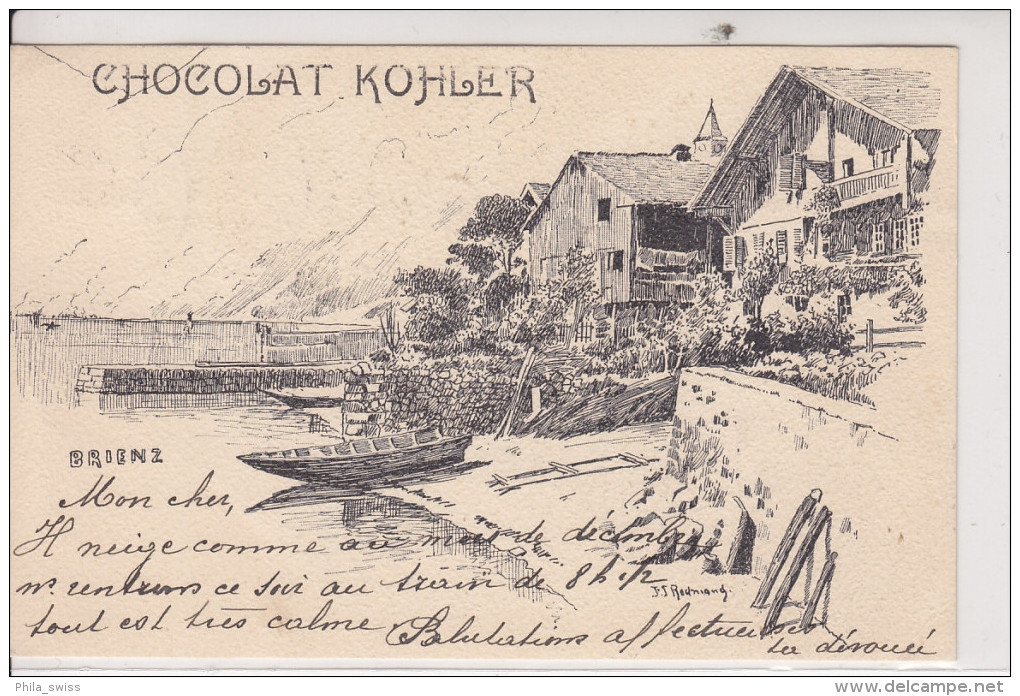 CHOCOLAT KOHLER
BRIENZ
Mon cher,
Il neige comme au mois de décembre
ns. rentrons ce soir au train de 8h 1/2
tout est très calme Salutations affectueuses
ta dévouée
Phila_swiss
www.delcampe.net